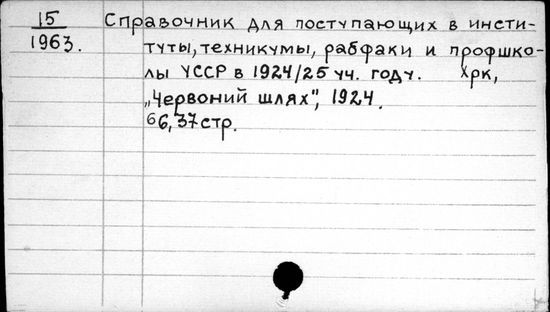 15 Справочник для поступающих в инсти-
1963. туты, техникумы, рабфаки и профшко-
лы УССР в 1924/25 уч. году. Хрк,
„Червоний шлях", 1924.
66, 37 стр.